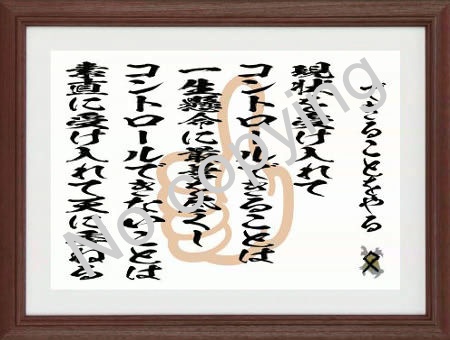 できることをやる
現状を受け入れて
コントロールできることは
一生懸命に最善を尽くし
コントロールできないことは
素直に受け入れて天に委ねる
No copying